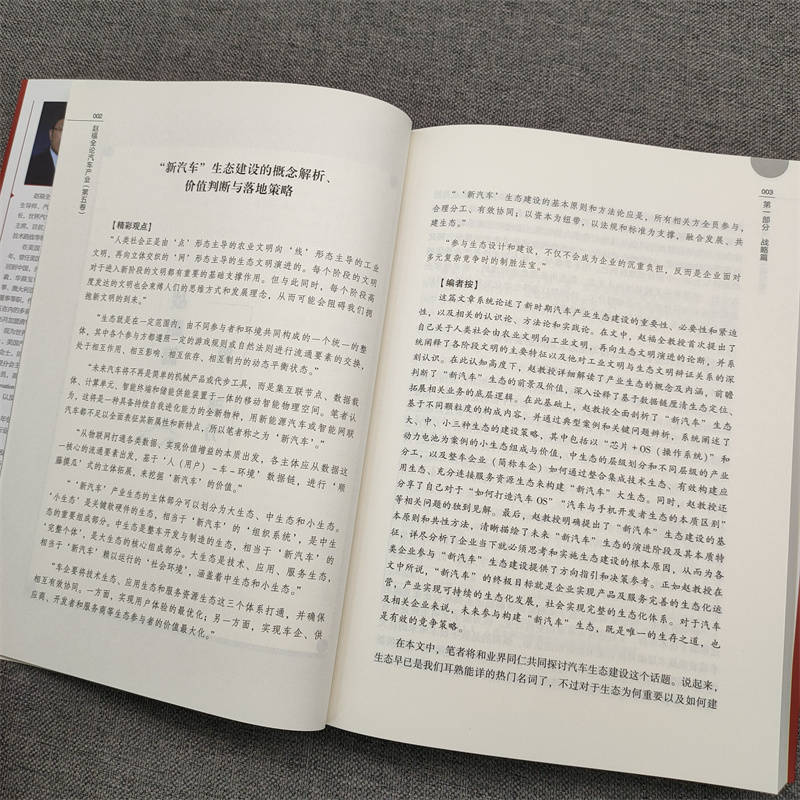 002
赵福全论汽车产业(第五卷)
“新汽车”生态建设的概念解析、
价值判断与落地策略
【精彩观点】
“人类社会正是由‘点’形态主导的农业文明向‘线’形态主导的工业
文明，再向立体交织的‘网’形态主导的生态文明演进的。每个阶段的文明
对于进入新阶段的文明都有重要的基础支撑作用。但与此同时，每个阶段高
度发达的文明也会束缚人们的思维方式和发展理念，从而可能会阻碍我们拥
抱新文明的到来。”
“生态就是在一定范围内，由不同参与者和环境共同构成的一个统一的整
体，其中各个参与方都遵照一定的游戏规则或自然法则进行流通要素的交换，
处于相互作用、相互影响、相互依存、相互制约的动态平衡状态。”
“未来汽车将不再是简单的机械产品或代步工具，而是集互联节点、数据载
体、计算单元、智能终端和储能供能装置于一体的移动智能物理空间。笔者认
为，这将是一种具备持续自我进化能力的全新物种，用新能源汽车或智能网联
汽车都不足以全面表征其新属性和新特点，所以笔者称之为‘新汽车’。”
“从物联网打通各类数据、实现价值增益的本质出发，各主体应从数据这
一核心的流通要素出发，基于‘人（用户）－车－环境’数据链，进行‘顺
藤摸瓜’式的立体拓展，来挖掘‘新汽车’的价值。”
“‘新汽车’产业生态的主体部分可以划分为大生态、中生态和小生态。
‘小生态’是关键软硬件的生态，相当于‘新汽车’的‘组织系统’，是中生
态的重要组成部分。中生态是整车开发与制造的生态，相当于‘新汽车’的
‘完整个体’，是大生态的核心组成部分。大生态是技术、应用、服务生态，
相当于‘新汽车’赖以运行的‘社会环境’，涵盖着中生态和小生态。”
“车企要将技术生态、应用生态和服务资源生态这三个体系打通，并确保
相互有效协同。一方面，实现用户体验的最优化；另一方面，实现车企、供
应商、开发者和服务商等生态参与者的价值最大化。”
003
第一部分 战略篇
“‘新汽车’生态建设的基本原则和方法论应是，所有相关方全员参与，
合理分工、有效协同；以资本为纽带，以法规和标准为支撑，融合发展、共
建生态。”
“参与生态设计和建设，不仅不会成为企业的沉重负担，反而是企业面对
多元复杂竞争时的制胜法宝。”
【编者按】
这篇文章系统论述了新时期汽车产业生态建设的重要性、必要性和紧迫
性，以及相关的认识论、方法论和实践论。在文中，赵福全教授首次提出了
自己关于人类社会由农业文明向工业文明，再向生态文明演进的论断，并系
统阐释了各阶段文明的主要特征以及他对工业文明与生态文明辩证关系的深
刻认识。在此认知高度下，赵教授详细解读了产业生态的概念及内涵，前瞻
判断了“新汽车”生态的前景及价值，深入诠释了基于数据链厘清生态定位、
拓展相关业务的底层逻辑。在此基础上，赵教授全面剖析了“新汽车”生态
基于不同颗粒度的构成内容，并通过典型案例和关键问题辨析，系统阐述了
大、中、小三种生态的建设策略，其中包括以“芯片＋OS（操作系统）”和
动力电池为案例的小生态组成与价值，中生态的层级划分和不同层级的产业
分工，以及整车企业（简称车企）如何通过整合集成技术生态、有效构建应
用生态、充分连接服务资源生态来构建“新汽车”大生态。同时，赵教授还
分享了自己对于“如何打造汽车OS”“汽车与手机开发者生态的本质区别”
等相关问题的独到见解。最后，赵教授明确提出了“新汽车”生态建设的基
本原则和共性方法，清晰描绘了未来“新汽车”生态的演进阶段及其本质特
征，详尽分析了企业当下就必须思考和实施生态建设的根本原因，从而为各
类企业参与“新汽车”生态建设提供了方向指引和决策参考。正如赵教授在
文中所说，“新汽车”的终极目标就是企业实现产品及服务完善的生态化运
营，产业实现可持续的生态化发展，社会实现完整的生态化体系。对于汽车
及相关企业来说，未来参与构建“新汽车”生态，既是唯一的生存之道，也
是有效的竞争策略。
在本文中，笔者将和业界同仁共同探讨汽车生态建设这个话题。说起来，
生态早已是我们耳熟能详的热门名词了，不过对于生态为何重要以及如何建